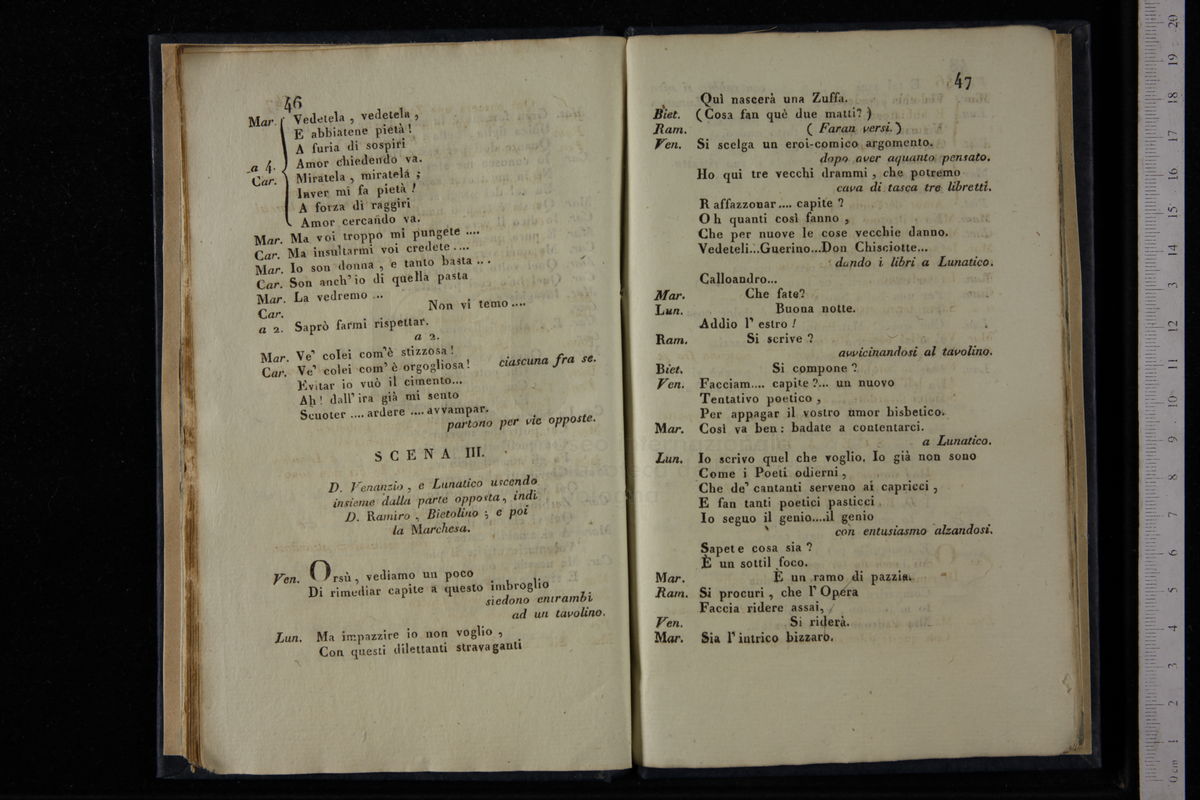 46
Mar. Vedetela , vedetela ,
E abbiatene pietà !
A furia di sospiri
a 4. Amor chiedendo va.
Car. Miratela , miratela ;
Inver mi fa pietà !
A forza di raggiri
Amor cercando va.
Mar. Ma voi troppo mi pungete ....
Car. Ma insultarmi voi credete ....
Mar. Io son donna , e tanto basta ...
Car. Son anch' io di quella pasta
Mar. La vedremo ...
Car. Non vi temo ....
a 2. Saprò farmi rispettar.
a 2.
Mar. Ve' colei com'è stizzosa !
Car. Ve' colei com' è orgogliosa ! ciascuna fra se.
Evitar io vuò il cimento...
Ah ! dall' ira già mi sento
Scuoter .... ardere .... avvampar.
partono per vie opposte.
SCENA III.
D. Venanzio , e Lunatico uscendo
insieme dalla parte opposta, indi
D. Ramiro , Bietolino ; e poi
la Marchesa.
Ven. Orsù , vediamo un poco
Di rimediar capite a questo imbroglio
siedono entrambi
ad un tavolino.
Lun. Ma impazzire io non voglio ,
Con questi dilettanti stravaganti
47
Quì nascerà una Zuffa.
Biet. (Cosa fan què due matti? )
Ram. ( Faran versi. )
Ven. Si scelga un eroi-comico argomento.
dopo aver aquanto pensato.
Ho qui tre vecchi drammi , che potremo
cava di tasca tre libretti.
Raffazzonar.... capite ?
Oh quanti così fanno ,
Che per nuove le cose vecchie danno.
Vedeteli...Guerino...Don Chisciotte...
dando i libri a Lunatico.
Calloandro...
Mar. Che fate?
Lun. Buona notte.
Addio l' estro !
Ram. Si scrive ?
avvicinandosi al tavolino.
Biet. Si compone ?
Ven. Facciam.... capite ?... un nuovo
Tentativo poetico ,
Per appagar il vostro umor bisbetico.
Mar. Così va ben : badate a contentarci.
a Lunatico.
Lun. Io scrivo quel che voglio. Io già non sono
Come i Poeti odierni ,
Che de' cantanti serveno ai capricci ,
E fan tanti poetici pasticci
Io seguo il genio....il genio
con entusiasmo alzandosi.
Sapete cosa sia ?
È un sottil foco.
Mar. È un ramo di pazzia.
Ram. Si procuri , che l' Opera
Faccia ridere assai,
Ven. Si riderà.
Mar. Sia l' intrico bizzaro.
0 cm 1 2 3 4 5 6 7 8 9 10 11 12 13 14 15 16 17 18 19 20